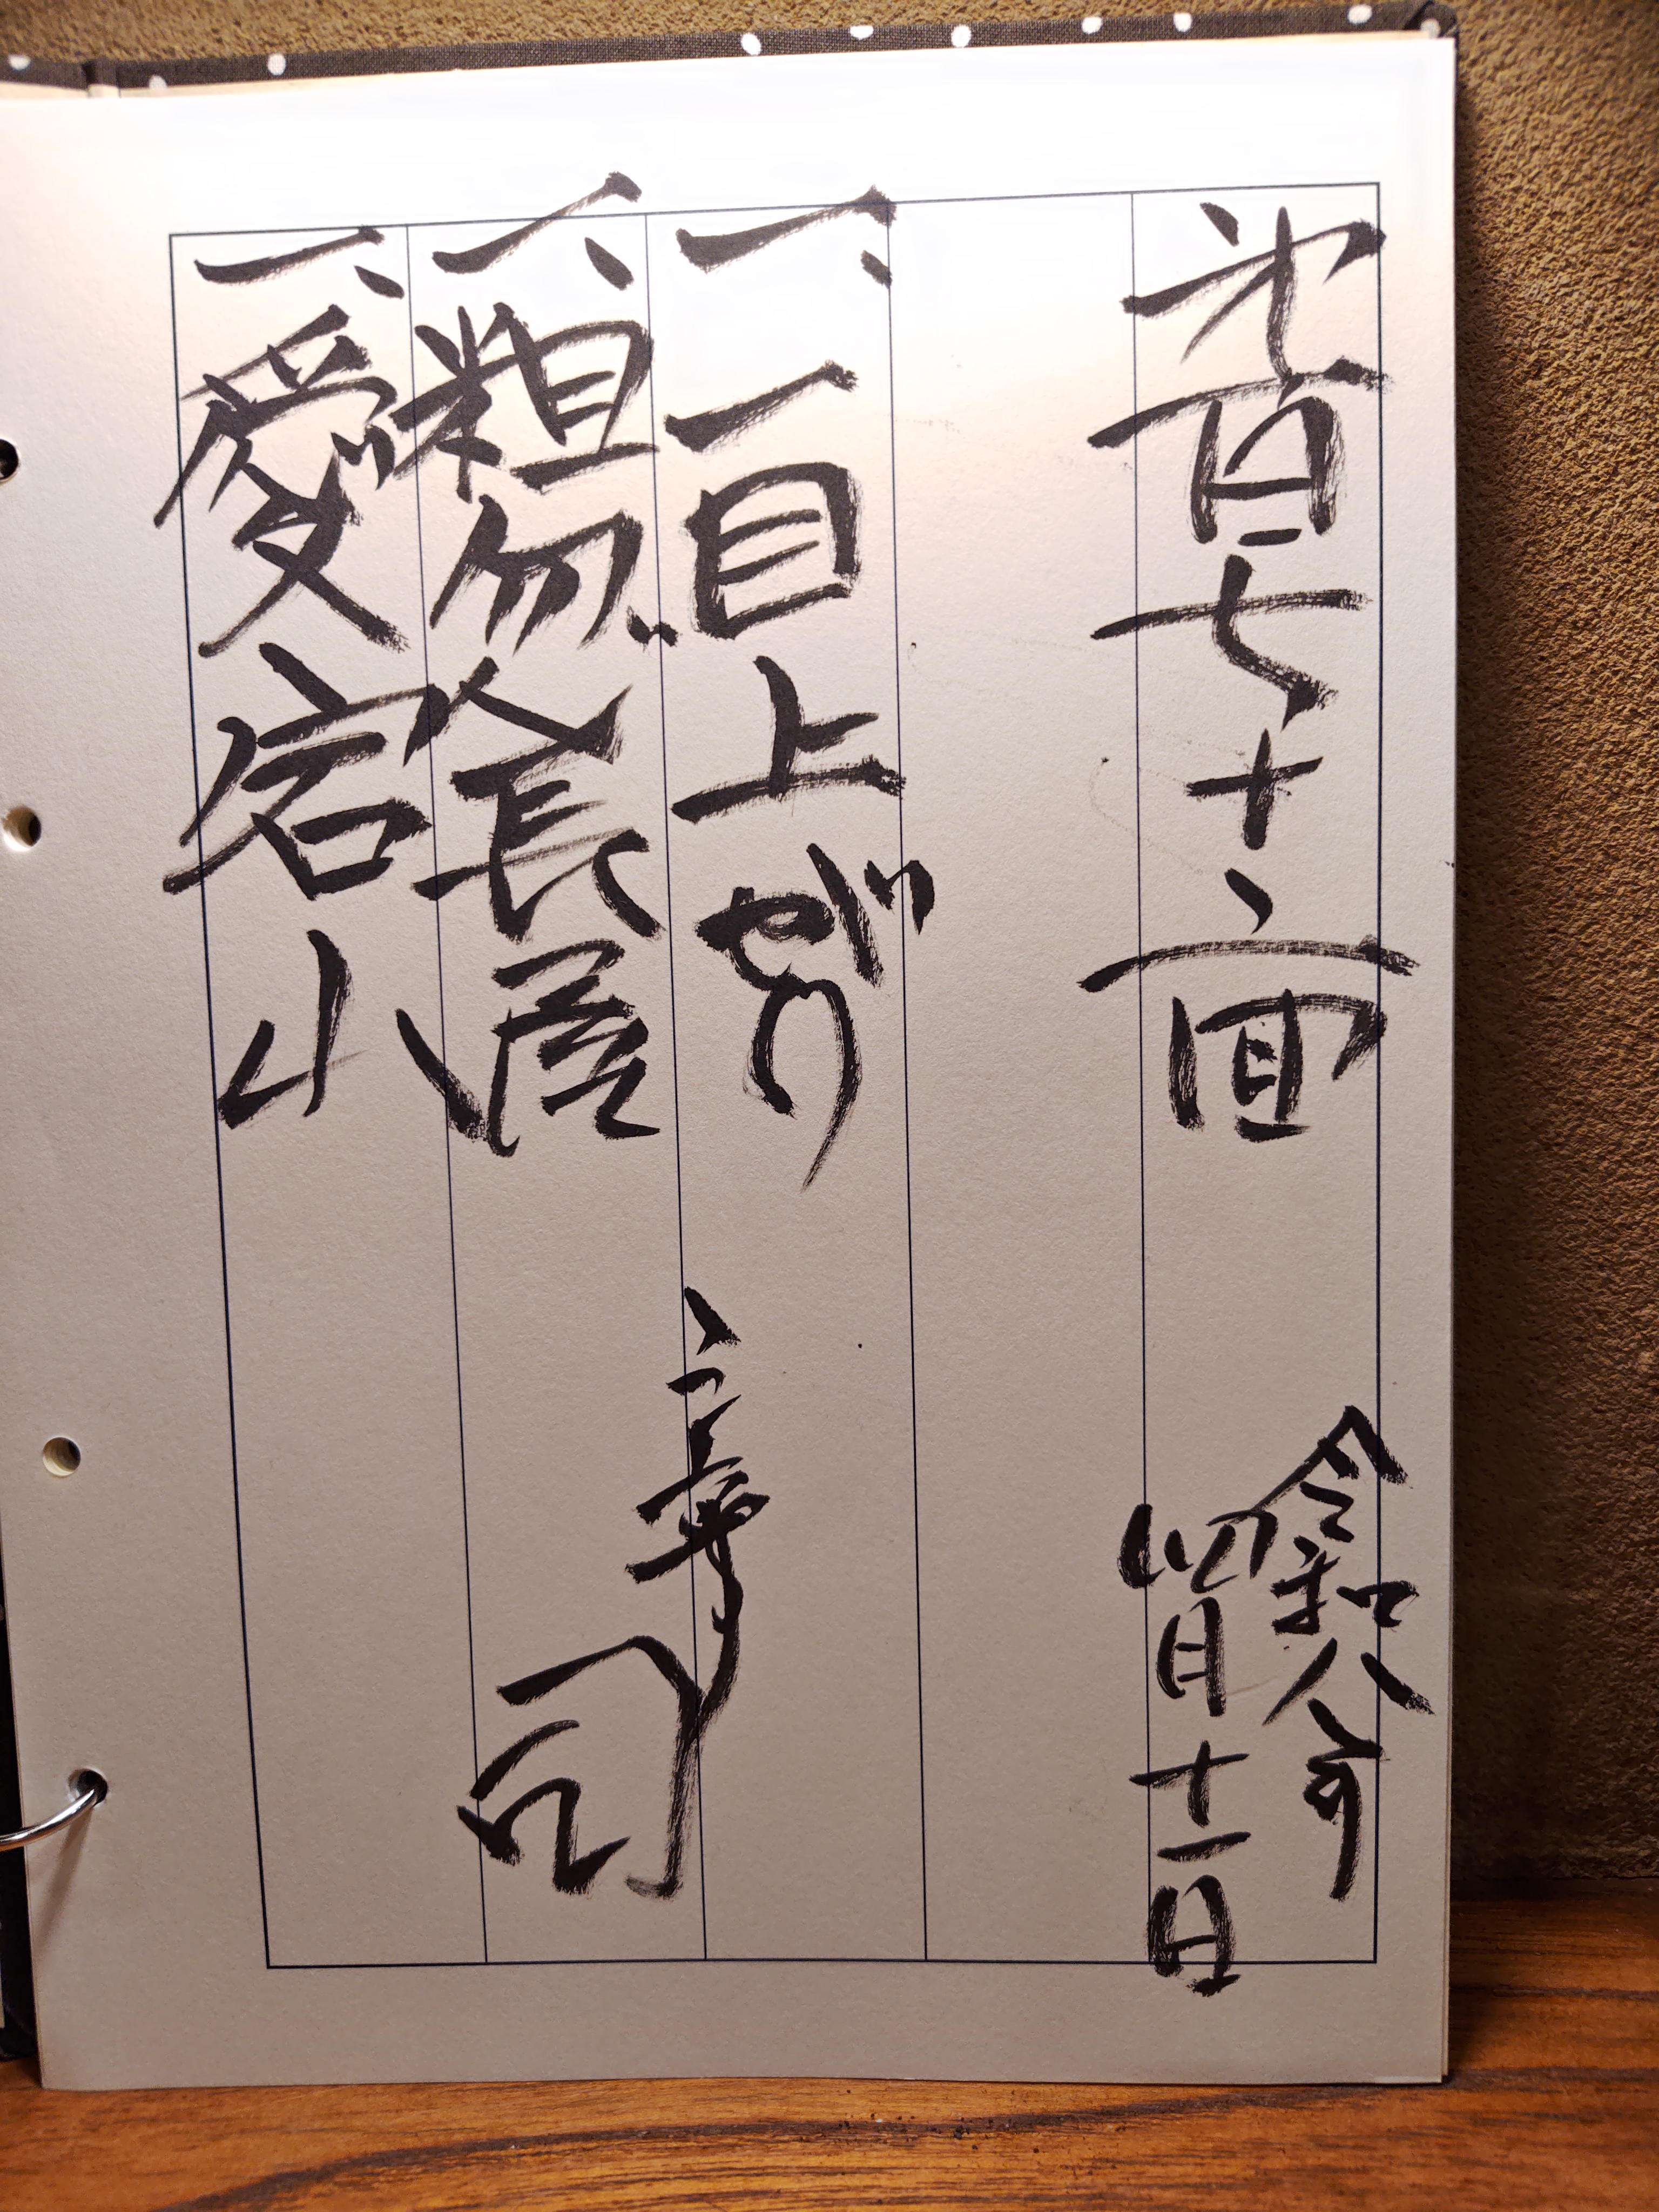 第百七十二回
令和八年
四月十一日
一、一目上がり
一、粗忽長屋
一、愛宕山
章司